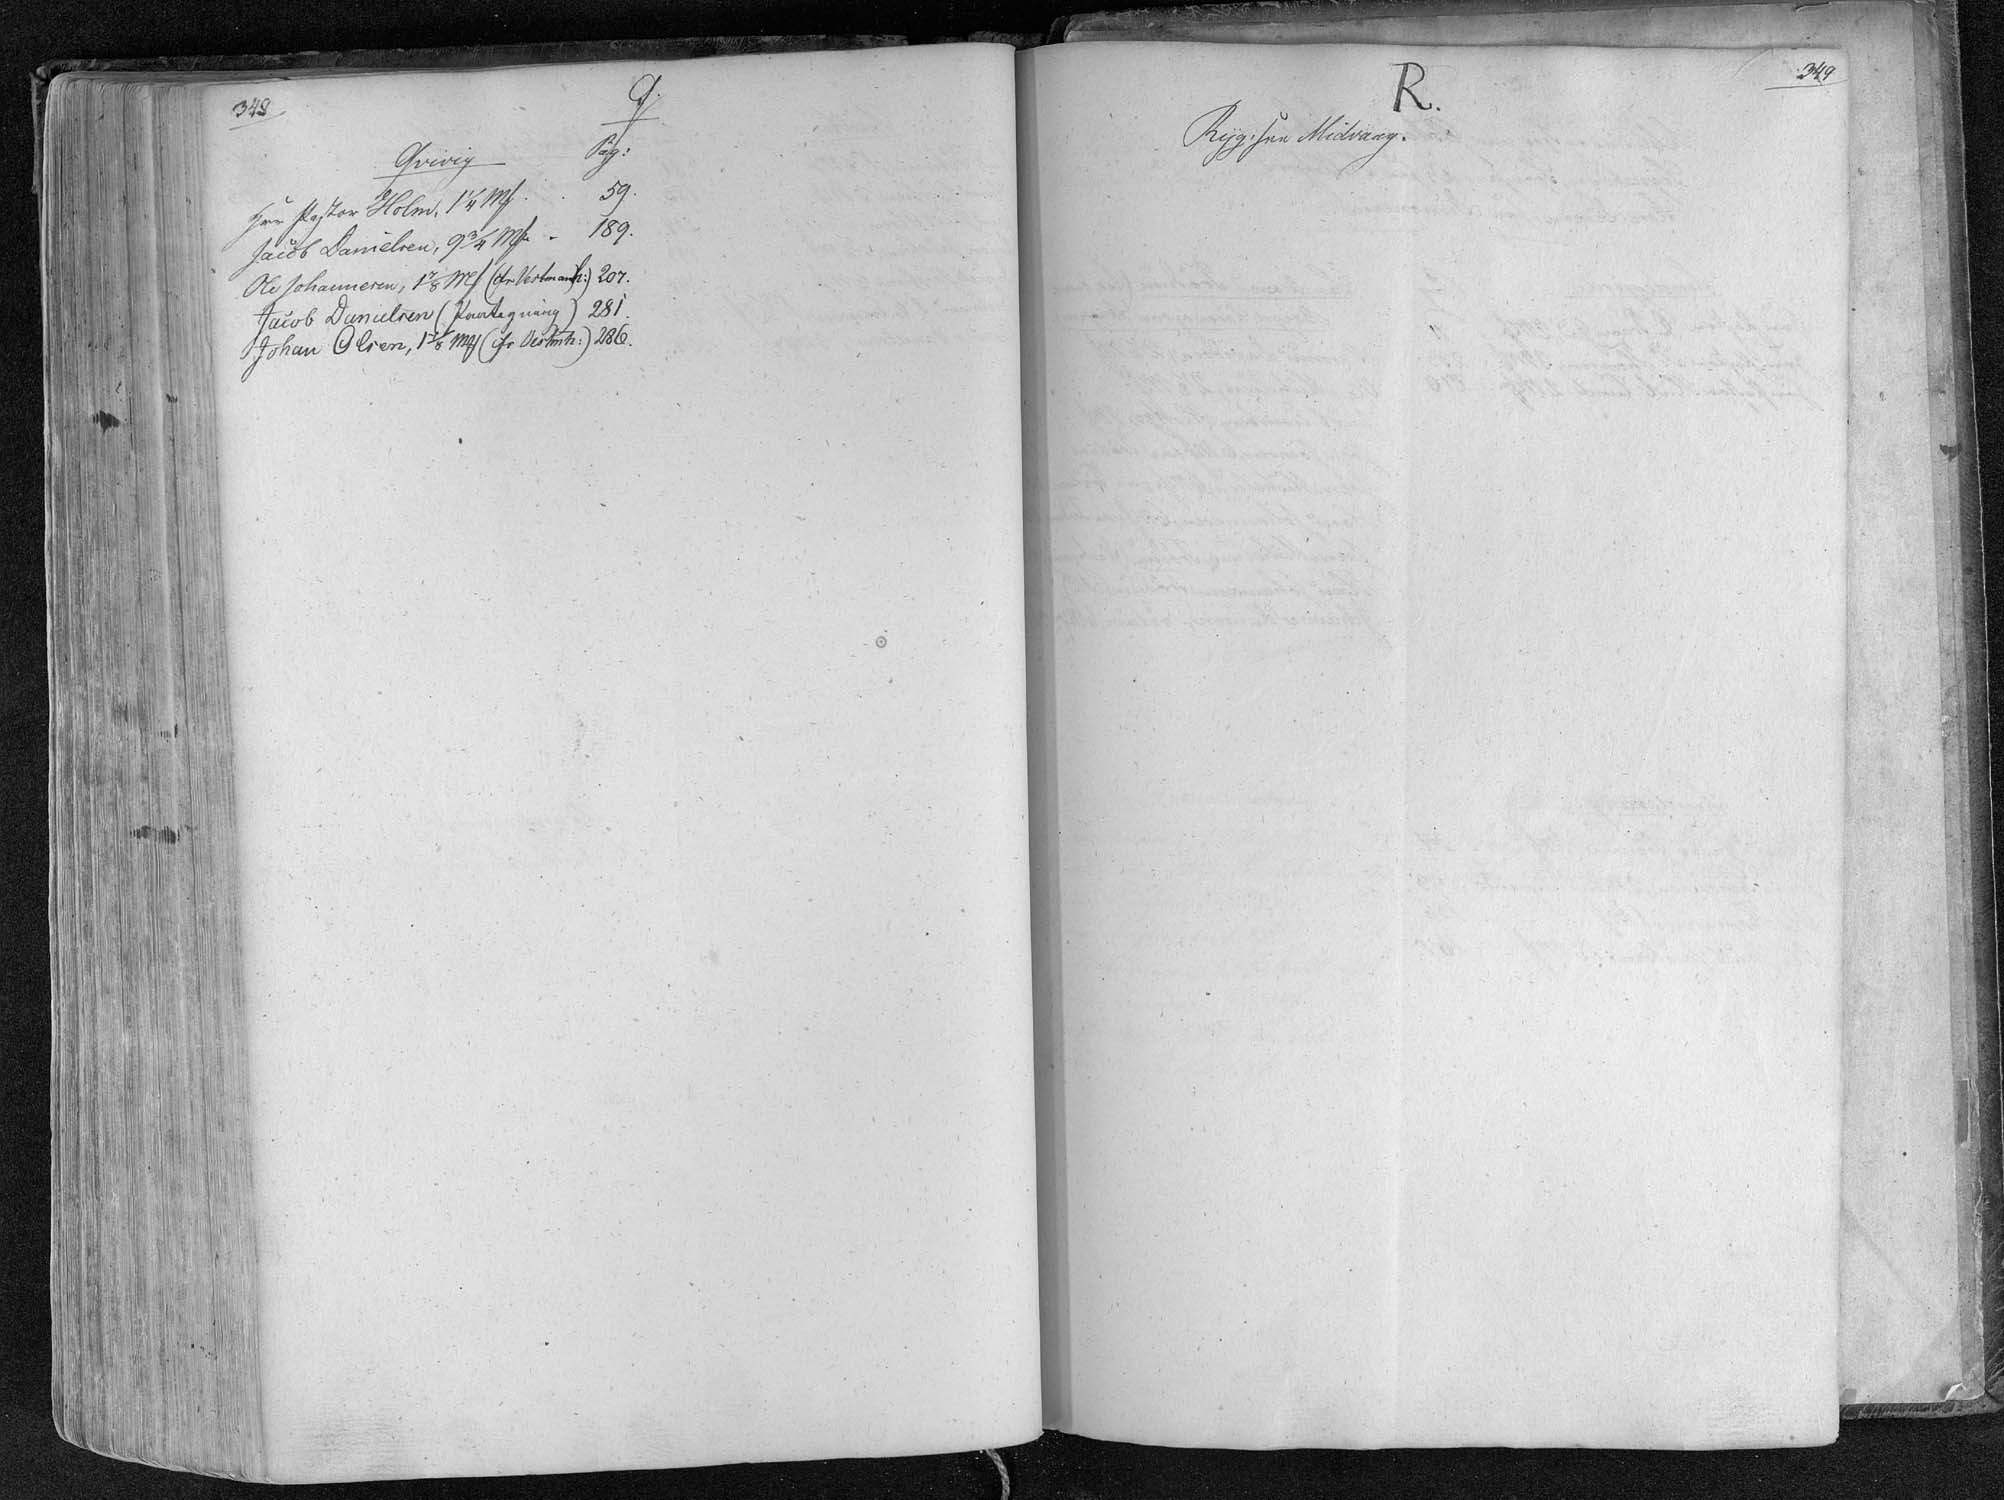 348
Q.
Qvivig Pag:
Herr Pastor Holm, 1 1/4 Mk . . 59.
Jacob Danielsen, 9 3/4 Mk. . 189.
Ole Johannesen, 1 7/8 Mk (cfr Vestmanh:) 207.
Jacob Danielsen (Paategning) 281.
Johan Olsen, 1 7/8 Mk (cfr Vestmh:) 286.
349
R.
Ryg: see Midvaag.